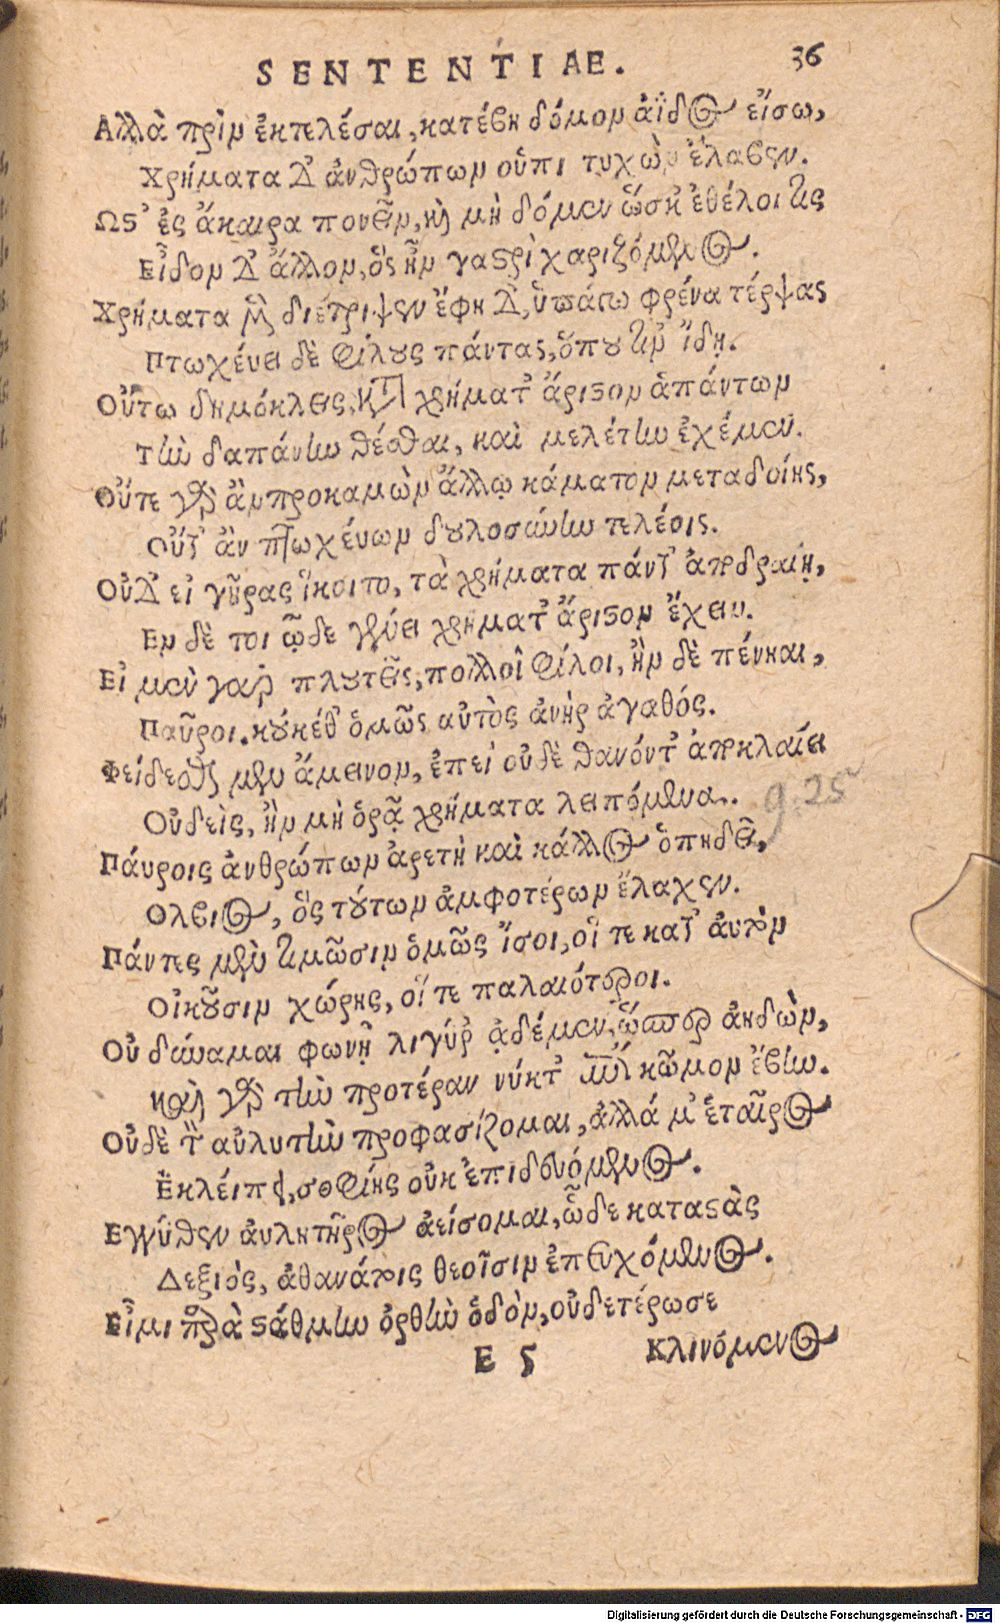 SENTENTIAE. 36
Αλλὰ πρὶν ἐκτελέσαι, κατέβη δόμον ἀΐδος εἴσω,
Χρήματα δ' ἀνθρώπων οὑπι τυχὼν ἔλαβεν.
Ωστ' ἐς ἄκαιρα πονεῖν, καὶ μὴ δόμεν ὥσκ' ἐθέλοι τις
Εἶδον δ' ἄλλον, ὃς ἦν γαστρὶ χαριζόμενος.
Χρήματα μὲν διέτριψεν ἔφη δ', ὑπάγω φρένα τέρψας
Πτωχένει δὲ φίλους πάντας, ὅπου τιν' ἴδῃ.
Οὕτω δημόκλεις, κατὰ χρήματ' ἄριστον ἁπάντων
Τὴν δαπάνην θέσθαι, καὶ μελέτην ἐχέμεν.
Οὔτε γὰρ ἂν προκαμὼν ἄλλῳ κάματον μεταδοίης,
Οὔτ' ἂν πτωχένων δουλοσύνην τελέοις.
Οὐδ' εἰ γῆρας ἵκοιτο, τὰ χρήματα πάντ' ἀποδραίη,
Εν δὲ τοι ᾧδε γένει χρήματ' ἄριστον ἔχειν.
Εἰ μὲν γὰρ πλουτεῖς, πολλοὶ φίλοι, ἢν δὲ πένηαι,
Παῦροι. κουκέθ' ὁμῶς αὐτὸς ἀνὴρ ἀγαθός.
Φείδεσθαι μὲν ἄμεινον, ἐπεὶ οὐδὲ θανόντ' ἀποκλαίει
Οὐδεὶς, ἢν μὴ ὁρᾷ χρήματα λειπόμενα.
Πάυροις ἀνθρώπων ἀρετὴ καὶ κάλλος ὀπηδεῖ,
Ολβιος, ὃς τούτων ἀμφοτέρων ἔλαχεν.
Πάντες μὲν τιμῶσιν ὁμῶς ἴσοι, οἵ τε κατ' ἀυτὸν
Οἰκοῦσιν χώρης, οἵ τε παλαιότεροι.
Οὐ δύναμαι φωνῇ λιγύρ' ᾀδέμεν, ὥσπερ ἀηδὼν,
καὶ γὰρ τὴν προτέραν νύκτ' ἐπὶ κῶμον ἔβην.
Οὐδὲ τ' αὐλητὴν προφασίζομαι, ἀλλά μ' ἑταῖρος
Ἐκλείπει, σοφίης οὐκ ἐπιδευόμενος.
Εγγύθεν ἀυλητῆρος ἀείσομαι, ὧδε καταστὰς
Δεξιὸς, ἀθανάτοις θεοῖσιν ἐπευχόμενος.
Εἶμι παρὰ στάθμην ὀρθὴν ὁδὸν, οὐδετέρωσε
E 5 Κλινόμενος
Digitalisierung gefördert durch die Deutsche Forschungsgemeinschaft - DFG